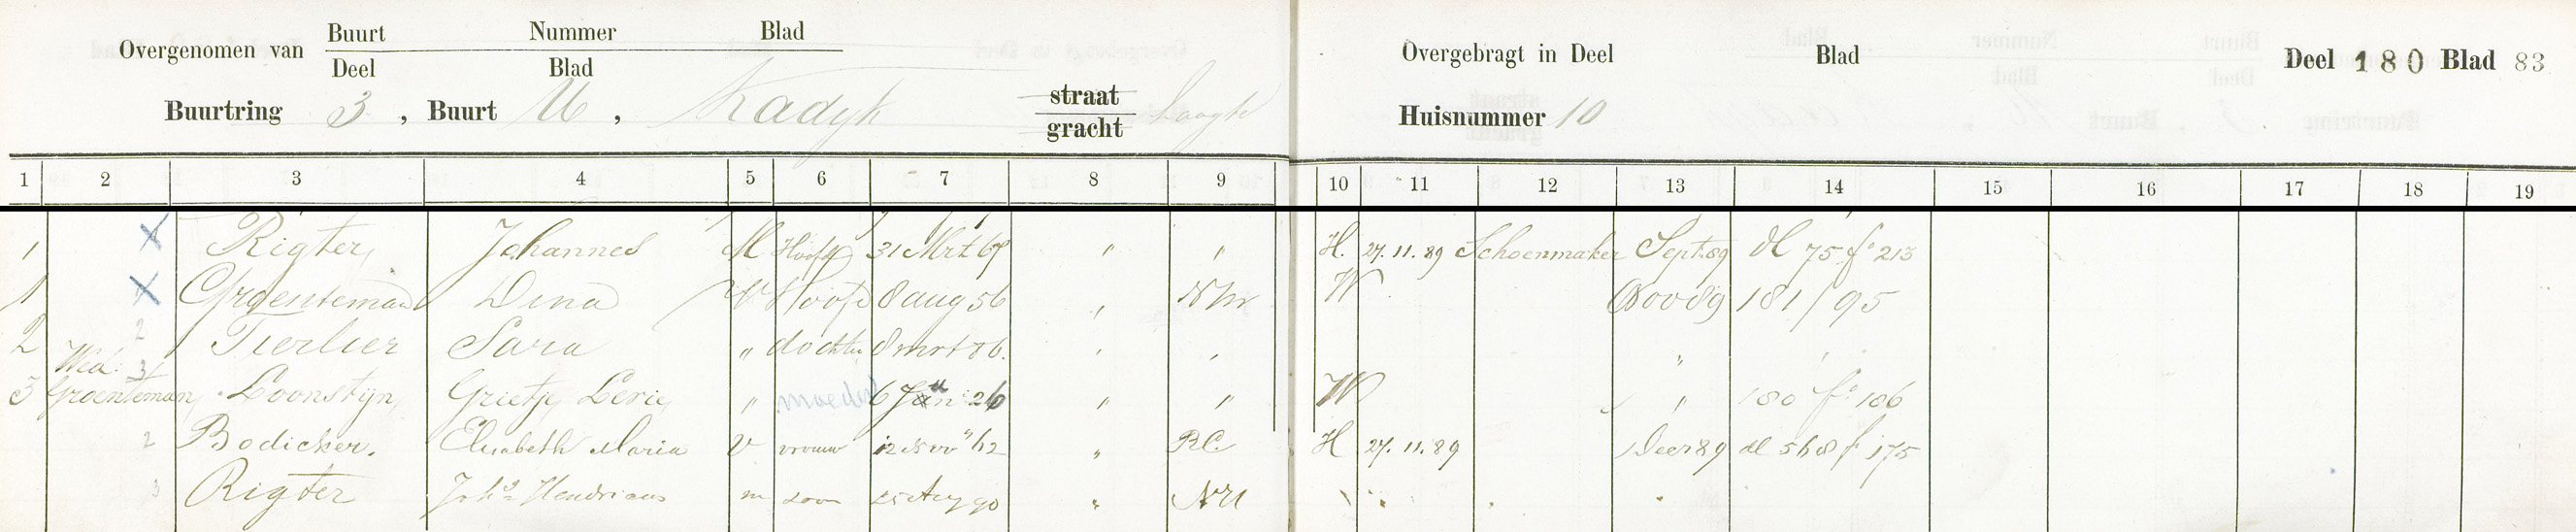 Overgenomen van Buurt Nummer Blad
Deel Blad
Overgebragt in Deel Blad
Deel 180 Blad 83
Buurtring 3, Buurt U, Kadyk straat gracht Laagte
Huisnummer 10
1 2 3 4 5 6 7 8 9 10 11 12 13 14 15 16 17 18 19
1 X Rigter, Johannes M Hoofd 31 Mrt 69 " " H. 27.11.89 Schoenmaker Sept 89 dl 75 fo 213
1 X Groenteman Dina V Hoofd 8 aug 56 " W Nov 89 181/95
2 2 Tierlier Sara " dochter 8 mrt 86. " " " "
3 Wed: Groenteman 3 Loonstijn Grietje Levie " moeder 6 Jun 26 " " W " 180 fo 106
2 Bodicker. Elisabeth Maria V vrouw 12 Nov 62 " RC H 27.11.89 dl 568 f 175
3 Rigter Johs Hendricus m zoon 25 Aug 90 " NH